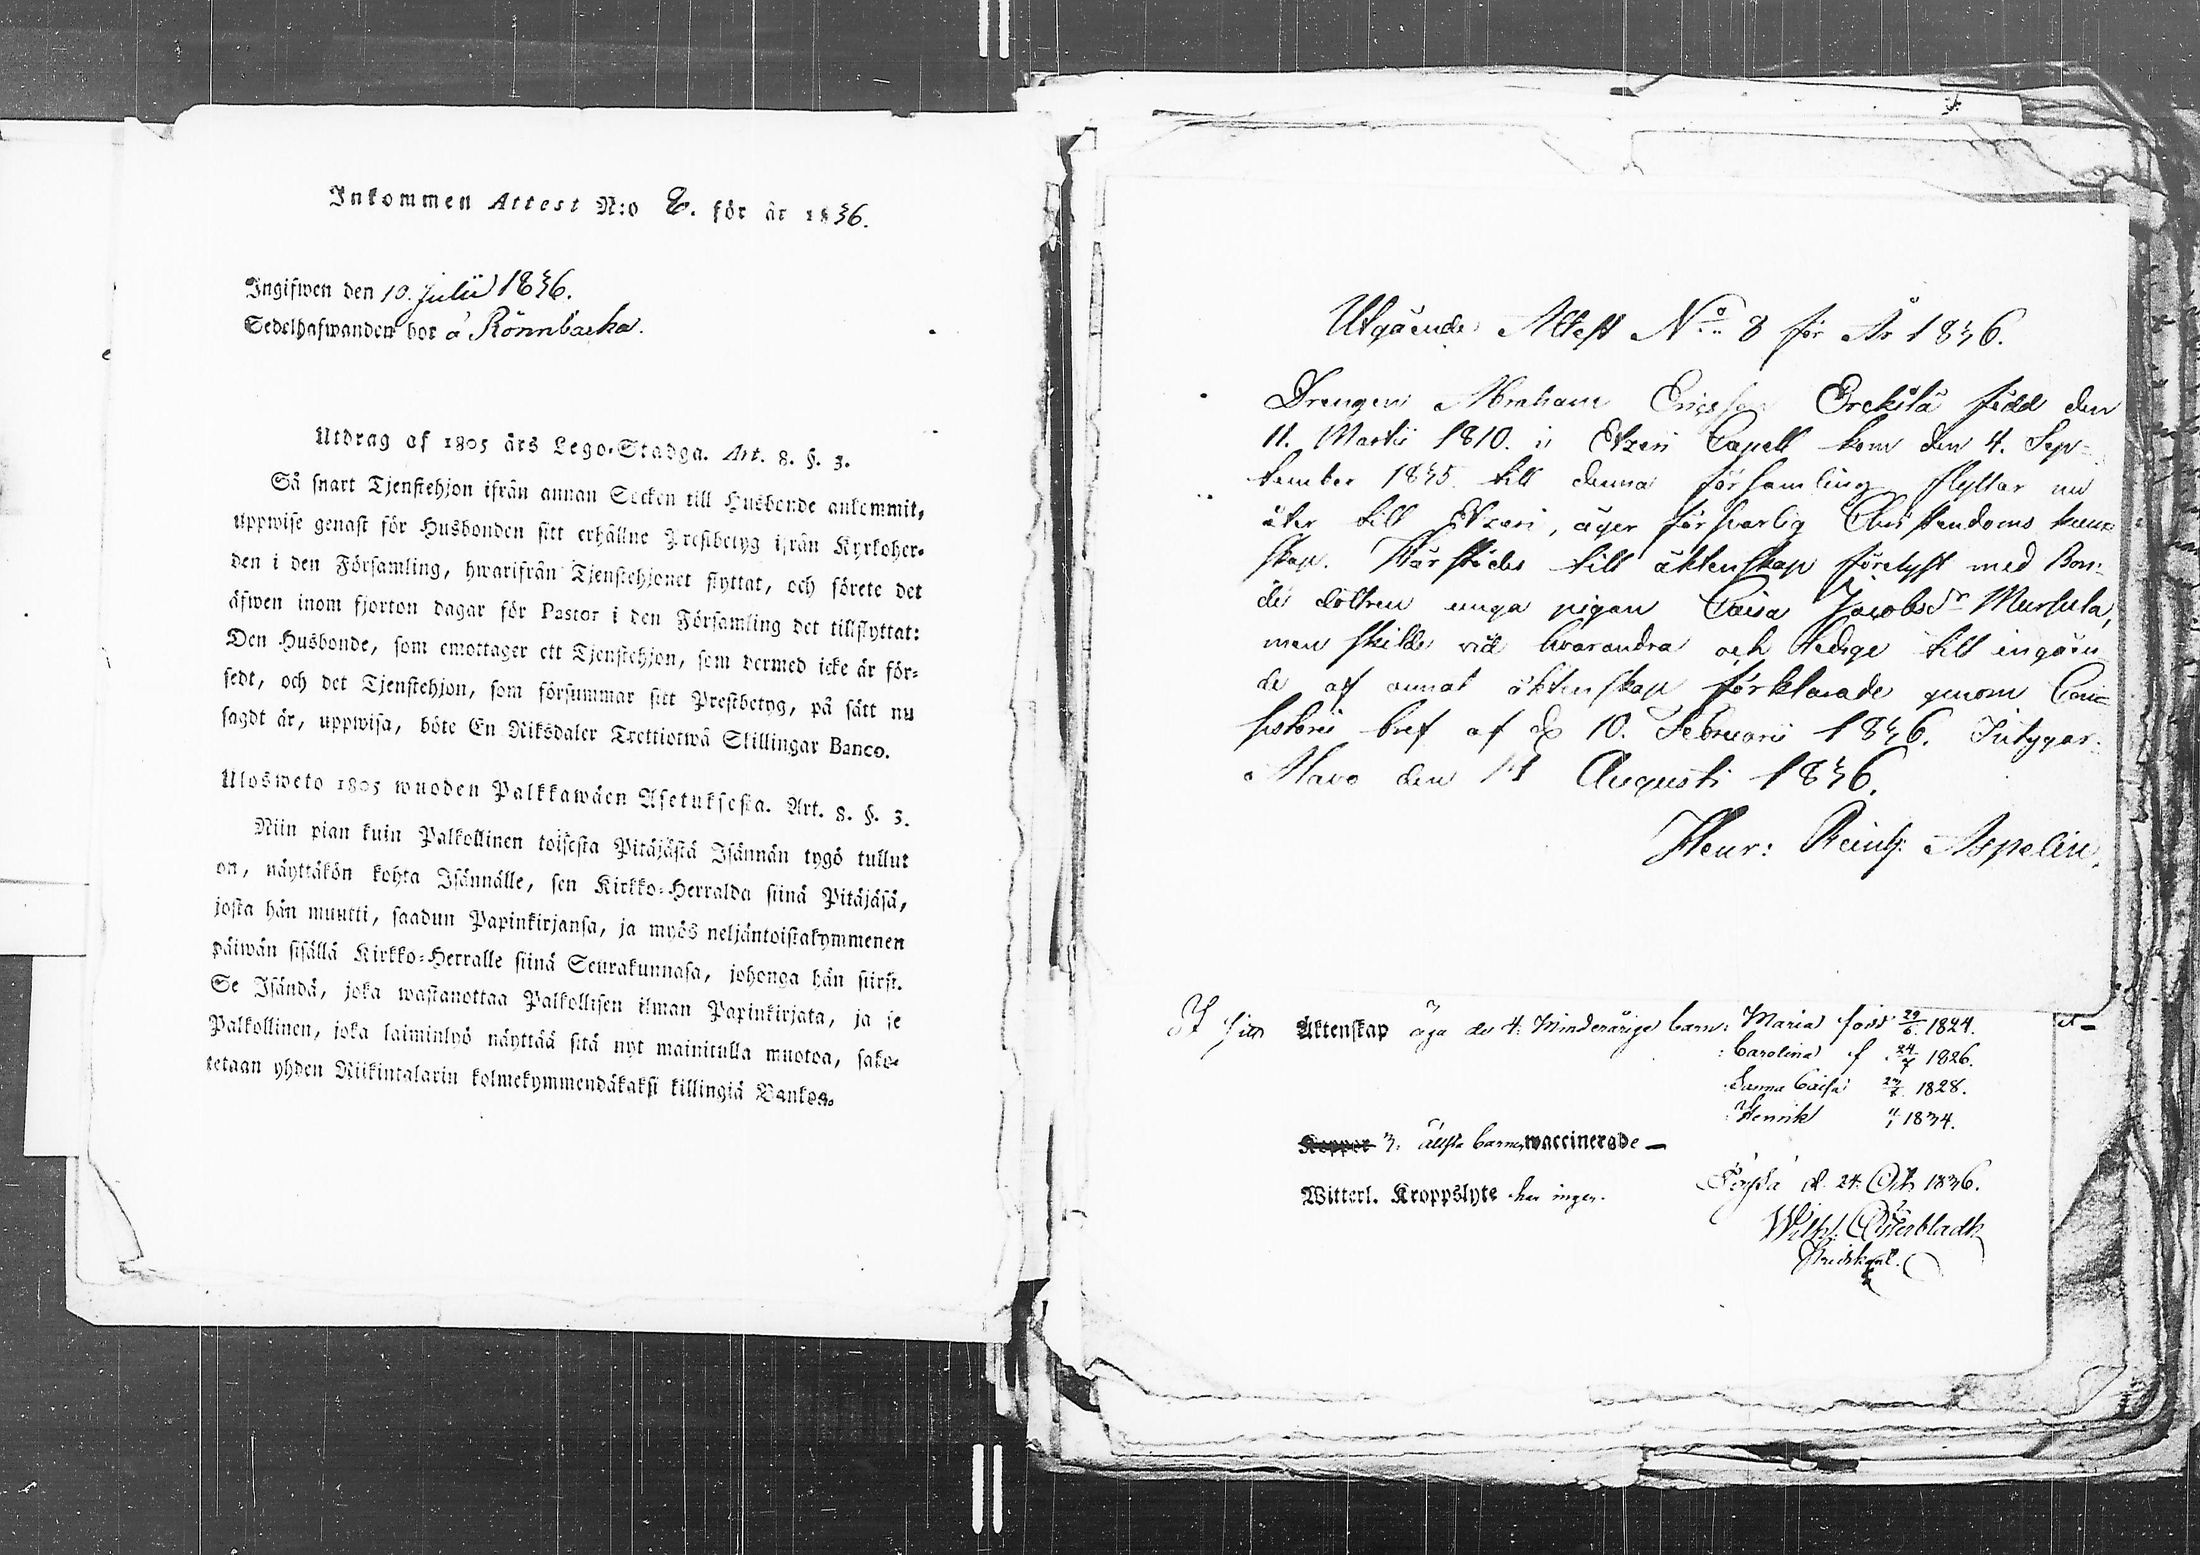 Inkommen Attest N:o 8. för år 1836.
Ingifwen den 10. Julii 1836.
Sedelhafwanden bor å Rönnbacka.
Utdrag af 1805 års Lego-Stadga. Art. 8. §. 3.
Så snart Tjenstehjon ifrån annan Socken till Husbonde ankommit,
uppwise genast för Husbonden sitt erhållne Prestbetyg ifrån Kyrkoher-
den i den Församling, hwarifrån Tjenstehjonet flyttat, och förete det
äfwen inom fjorton dagar för Pastor i den Församling det tillflyttat:
Den Husbonde, som emottager ett Tjenstehjon, som dermed icke är för-
sedt, och det Tjenstehjon, som försummar sitt Prestbetyg, på sätt nu
sagdt är, uppwisa, böte En Riksdaler Trettiotwå Skillingar Banco.
Ulosweto 1805 wuoden Palkkawäen Asetuksesta. Art. 8. §. 3.
Niin pian kuin Palkollinen toisesta Pitäjästä Isännän tygö tullut
on, näyttäkön kohta Isännälle, sen Kirkko-Herralda siinä Pitäjäsä,
josta hän muutti, saadun Papinkirjansa, ja myös neljäntoistakymmenen
päiwän sisällä Kirkko-Herralle siinä Seurakunnasa, johonga hän siirsi.
Se Isändä, joka wastanottaa Palkollisen ilman Papinkirjata, ja se
Palkollinen, joka laiminlyö näyttää sitä nyt mainitulla muotoa, sako-
tetaan yhden Riikintalarin kolmekymmendäkaksi killingiä Bankos.
Utgående Attest No 8 för År 1836.
Drengen Abraham Ericsson Erckilä född den
11. Martii 1810. i Etzeri Capell kom den 4. Sep-
tember 1835. till denna församling flyttar nu
åter till Etzeri, äger försvarlig Christendoms kun-
skap. Här städes till äktenskap förelyst med Bon-
de dottren unga pigan Caisa Jacobsdr Mursula,
men skilde vid hvarandra och ledige till ingåen-
de af annat äktenskap förklarade genom Con-
sistorii bref af d. 10. Februarii 1836. Intygar.
Alavo den 14 Augusti 1836.
Henr: Reinh: Aspelin.
Äktenskap äga de 4. Minderårige barn: Maria född 29/6 1824.
Carolina f 24/7 1826.
Sanna Caisa 1828.
Henrik 1834.
Koppor 3. äldsta barnen waccinerade —
Witterl. Kroppslyte har ingen.
d. 24. Oct. 1836.
Wilh. Österbladh